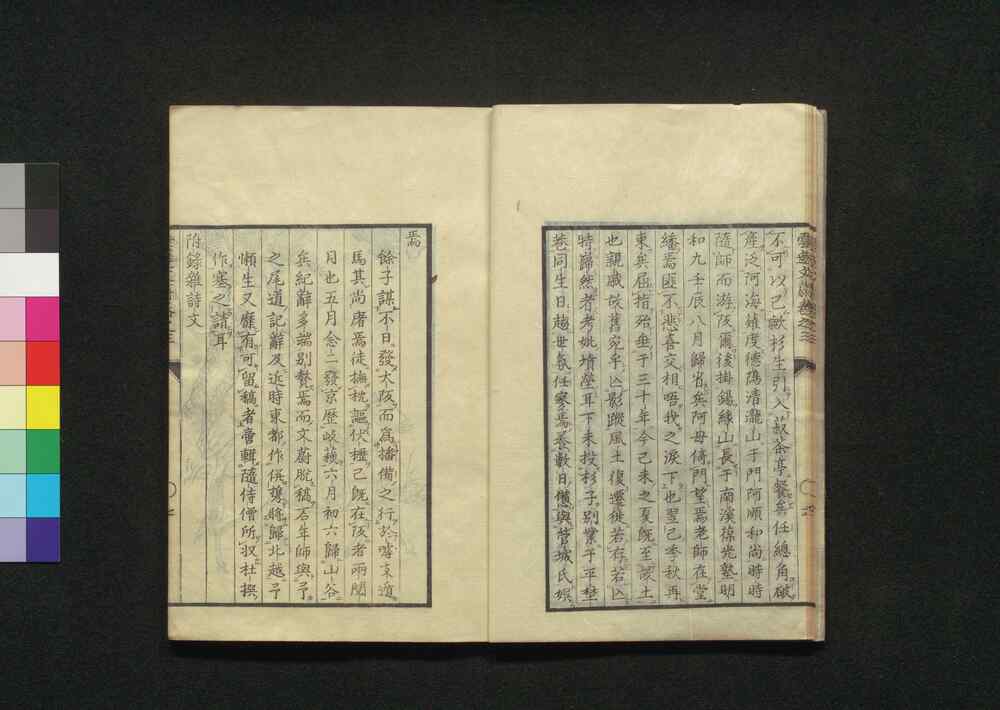 不可以已歟杉生引入敲茶亭餐矣任總角破
産泛河海雖度德隱清瀧山于門阿順和尚時時
隨師而游阪爾後掛錫緣山長于南溪葆光塾明
和九壬辰八月歸省矣阿母倚門望焉老師在堂
繙焉匪不悲喜交相唔我之淚下也翌己季秋再
東矣屈指殆垂于三十年今己未之夏既至家土
也親戚談舊宛乎亾影蹤風土復遷徙若存若亾
特歸然者考妣墳塋耳下未投杉子別業于平埜
巷同生日趙世氛任寥焉養數日儻與管城氏娯
焉
餘子謀不日發大阪而爲播備之行於嘑東道
馬其尚虺焉徒撫枕謳伏櫪己既在阪者兩閲
月也五月念二發京歷岐蘓六月初六歸山谷
矣紀辭多端別贅焉而文蔚脫稿否年師與予
之尾道記辭及近時東都作併襲將歸北越予
懶生又癃有可留稿者啻輯隨侍僧所収杜撰
作塞之請耳
附錄雜詩文